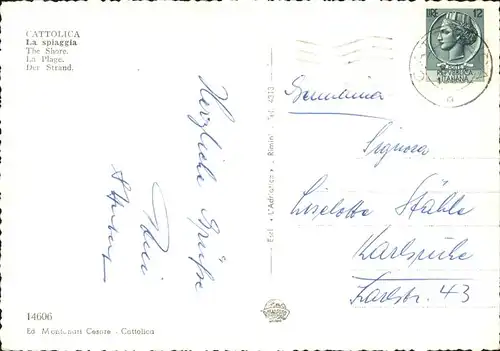 CATTOLICA
La spiaggia
The Shore.
La Plage.
Der Strand.
LIRE 12
REPUBBLICA
ITALIANA
Herzliche Grüße
Signora
Liselotte Stähle
Karlsruhe
Karlstr. 43
Escl. «L'Adriatica» - Rimini - Tel. 4313
14606
Ed. Montanari Cesare - Cattolica